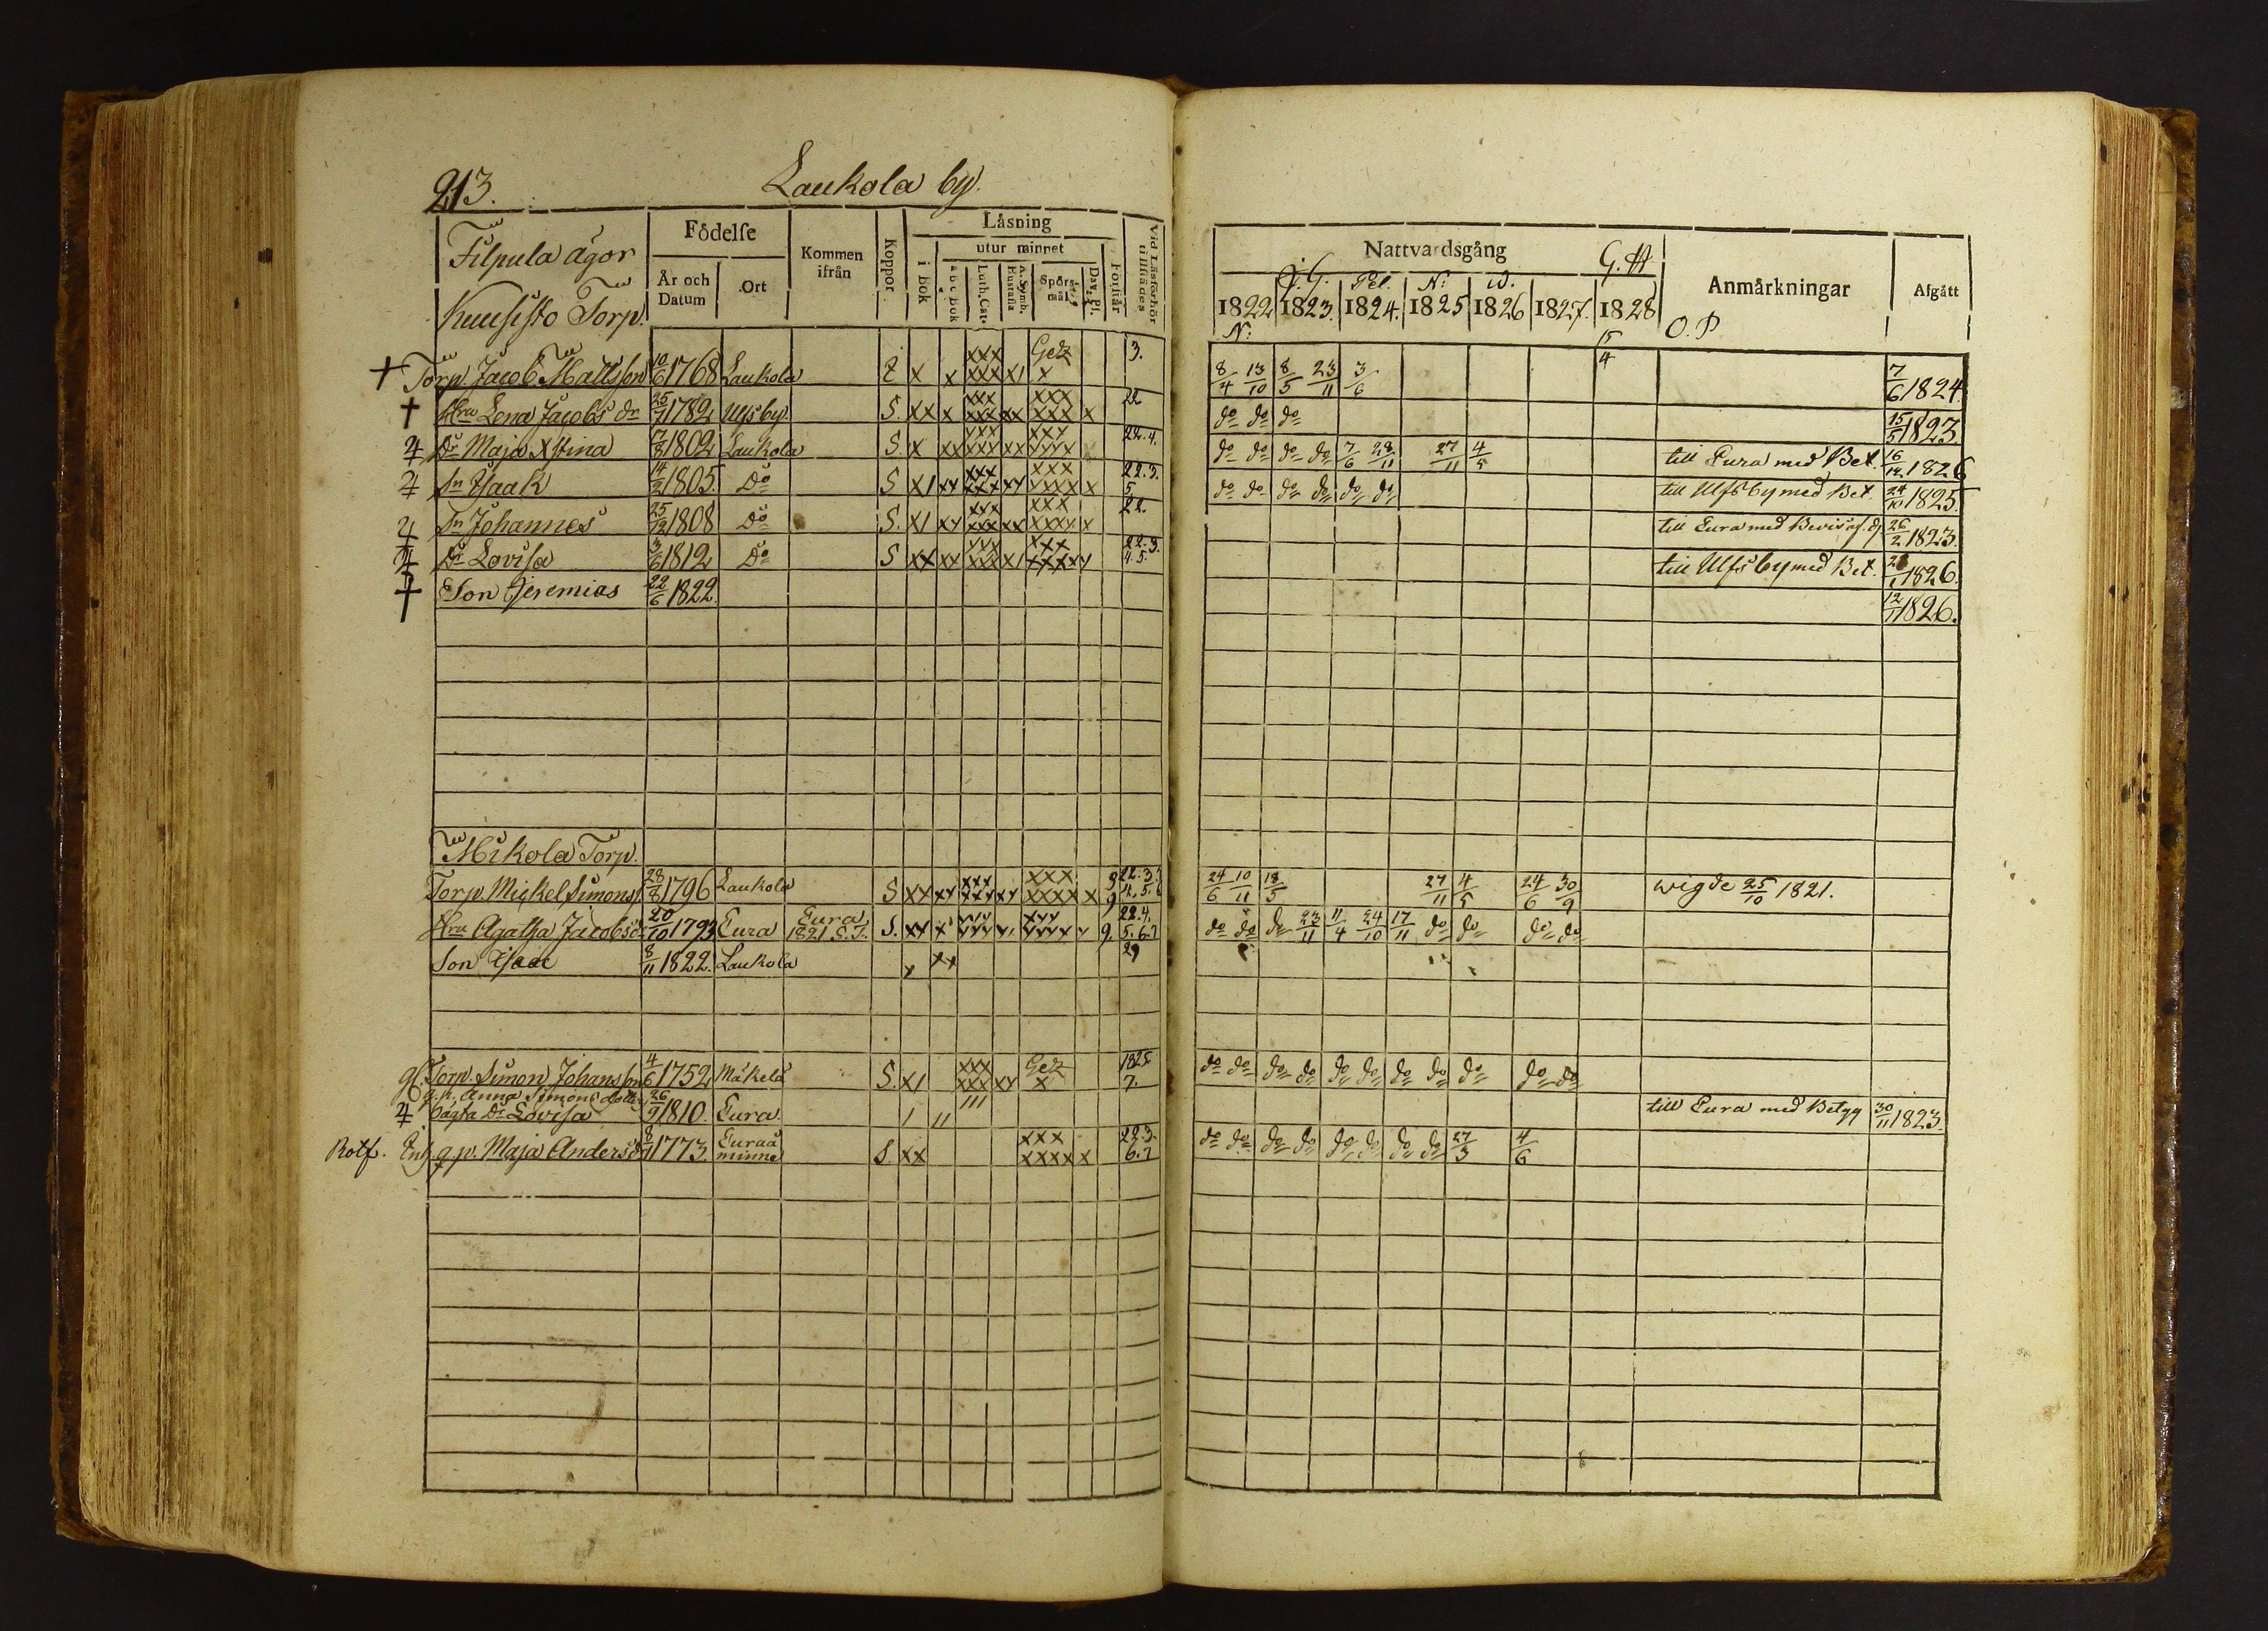 213. Laukola by.
Filpula ägor
Kuusisto Torp.
Födelse
År och Datum
Ort
Kommen ifrån
Koppor
Låsning
i bok
utur minnet
a b c bok
Luth. Cat.
A. Symb. Hustafla
Spörsmål
Dav. Ps.
Förstår
Vid Läsförhör tillstädes
Nattvardsgång G. A.
J. G. Pet. N: d.
1822 1823. 1824. 1825 1826 1827. 1828
N: 15/4
Anmårkningar
O. P
Afgått
† Torp. Jacob Mattsson 10/6 1768 Laukola x x xxx xxx x1 Getz x 3. 8/4 13/10 8/5 23/11 3/6 7/6 1824.
† Hru Lena Jacobs dr 25/7 1782 Ulfsby. S. xx x xxx xxx xx xxx xxx x 22 do do do 15/5 1823
Dr Maja Xstina 17/8 1802 Laukola S. x xx xxx xxx xx xxx xxxx 22.4. do do do do 7/6 28/11 27/11 4/5 till Eura med Bet. 16/12 1826
Sn Isaak 14/2 1805. Do S x1 xx xxx xxx xx xxx xxxx x 22.3. 5 do do do do do do till Ulfsby med Bet. 24/10 1825.
Sn Johannes 25/12 1808 Do S. x1 xx xxx xxx xx xxx xxxx x 22. till Eura med Bevis af. 26/2 1823.
Dr Lovisa 3/6 1812 Do S xx xx xxx xxx x1 xxx xxxxx 22.3. 4.5. till Ulfsby med Bet. 1826.
† Son Jeremias 22/6 1822. 12/11 1826.
Mikola Torp.
Torp. Mickel Simonss. 28/8 1796 Laukola S xx xx xxx xxxx xx xxx xxxx x 9 22.3. 4.5.6 24/6 10/11 18/5 27/11 4/5 24/6 30/9 wigde 25/10 1821.
Hru Agatha Jacobsdr 20/10 1793 Eura Eura 1821 S. J. S. xx x xxx xxx x1 xxx xxxx x 9. 22.4. 5.6.7 do do do 23/11 11/4 24/10 17/11 do do do do
Son Isaac 8/11 1822. Laukola x xx 29
Torp. Simon Johansson 4/6 1752 Mäkelä S. x1 xxx xxx xx Getz x 1825 7. do do do do do do do do do do do
g. p. Anna Simons dotter
oägta Dr Lovisa 26/9 1810. Eura. 1 11 111 till Eura med Betyg 30/11 1823.
Rotf. Enk. g. p. Maja Andersdr 8/1 1773. Euraå minne S. xx xxx xxxx x 22.3. 6.7 do do do do do do do do 27/3 4/6